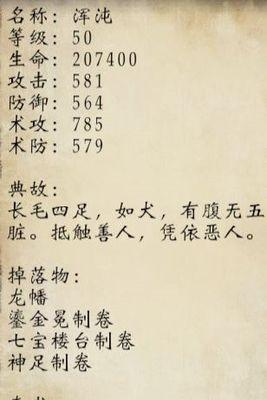 名称: 浑沌
等级: 50
生命: 207400
攻击: 581
防御: 564
术攻: 785
术防: 579
典故:
长毛四足，如犬，有腹无五
脏。抵触善人，凭依恶人。
掉落物:
龙幡
鎏金冕制卷
七宝楼台制卷
神足制卷